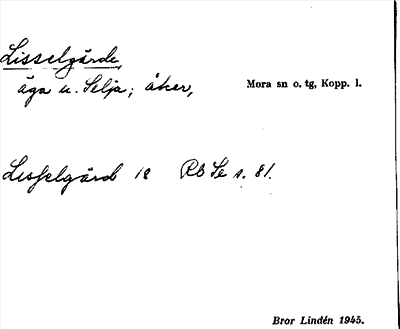 Lisselgärde,
äga u. Selja; åker,
Mora sn o. tg, Kopp. l.
Lisselgärd 18 Rb Se s. 81.
Bror Lindén 1945.